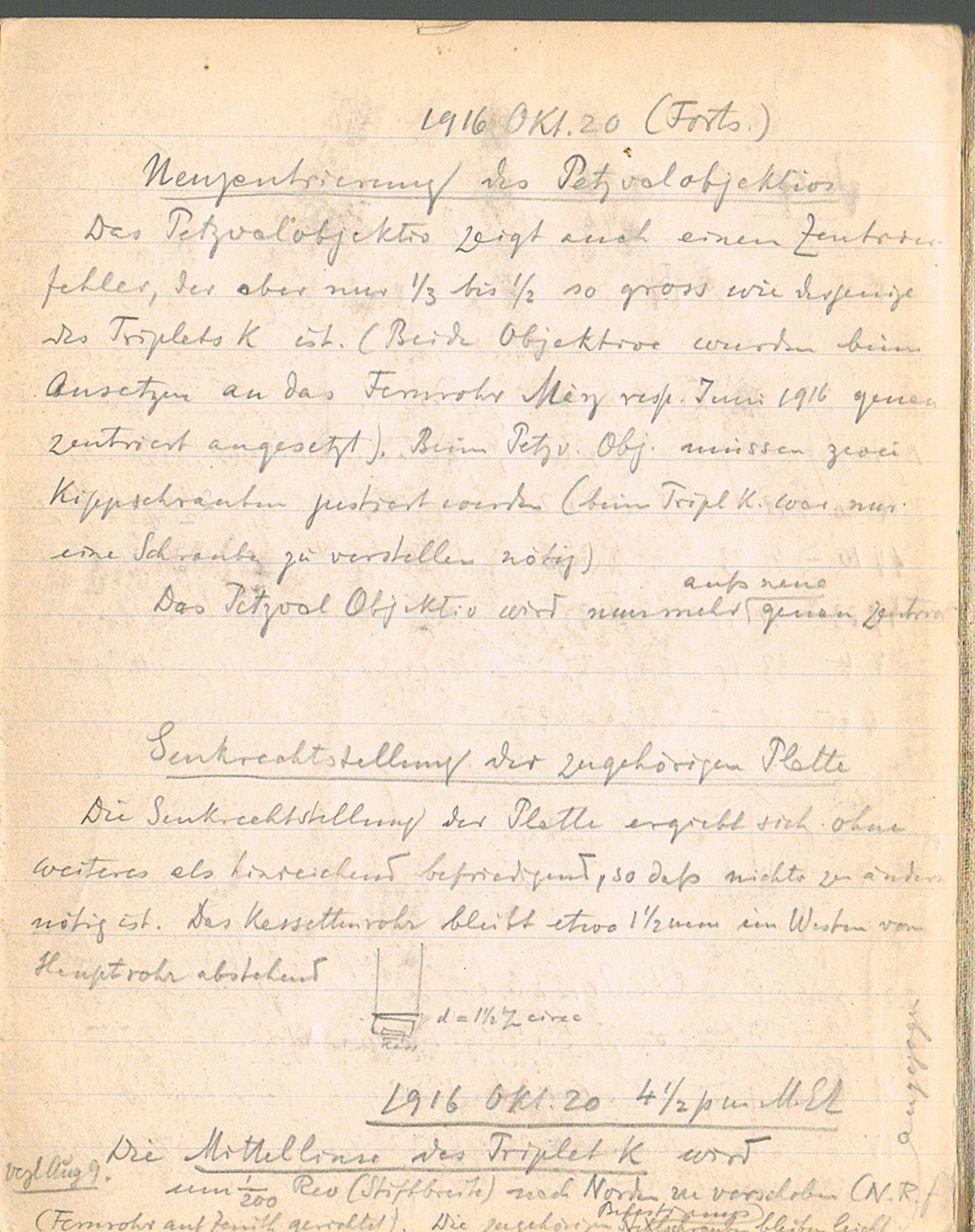 1916 Okt. 20 (Forts.)
Neuzentrierung des Petzvalobjektivs
Das Petzvalobjektiv zeigt auch einen Zentrier-
fehler, der aber nur 1/3 bis 1/2 so gross wie derjenige
des Triplets K ist. (Beide Objektive wurden beim
Ansetzen an das Fernrohr März resp. Juni 1916 genau
zentriert angesetzt). Beim Petzv. Obj. müssen zwei
Kippschrauben justiert werden (beim Tripl K. war nur
eine Schraube zu verstellen nötig)
aufs neue
Das Petzval Objektiv wird nunmehr genau
Senkrechtstellung der zugehörigen Platte
Die Senkrechtstellung der Platte ergiebt sich ohne
weiteres als hinreichend befriedigend, so daß nichts zu ändern
nötig ist. Das Kassettenrohr bleibt etwa 1 1/2 mm im Westen vom
Hauptrohr abstehend
d = 1 1/2 circa
Kass
1916 Okt. 20 4 1/2 pm MEZ
Die Mittellinse des Triplet K wird
vergl Aug 9.
um 1/200 Rev (Stiftbreite) nach Norden zu verschoben (N.R.
(Fernrohr auf Zenith gerichtet). Die zugehörigen bleiben leicht